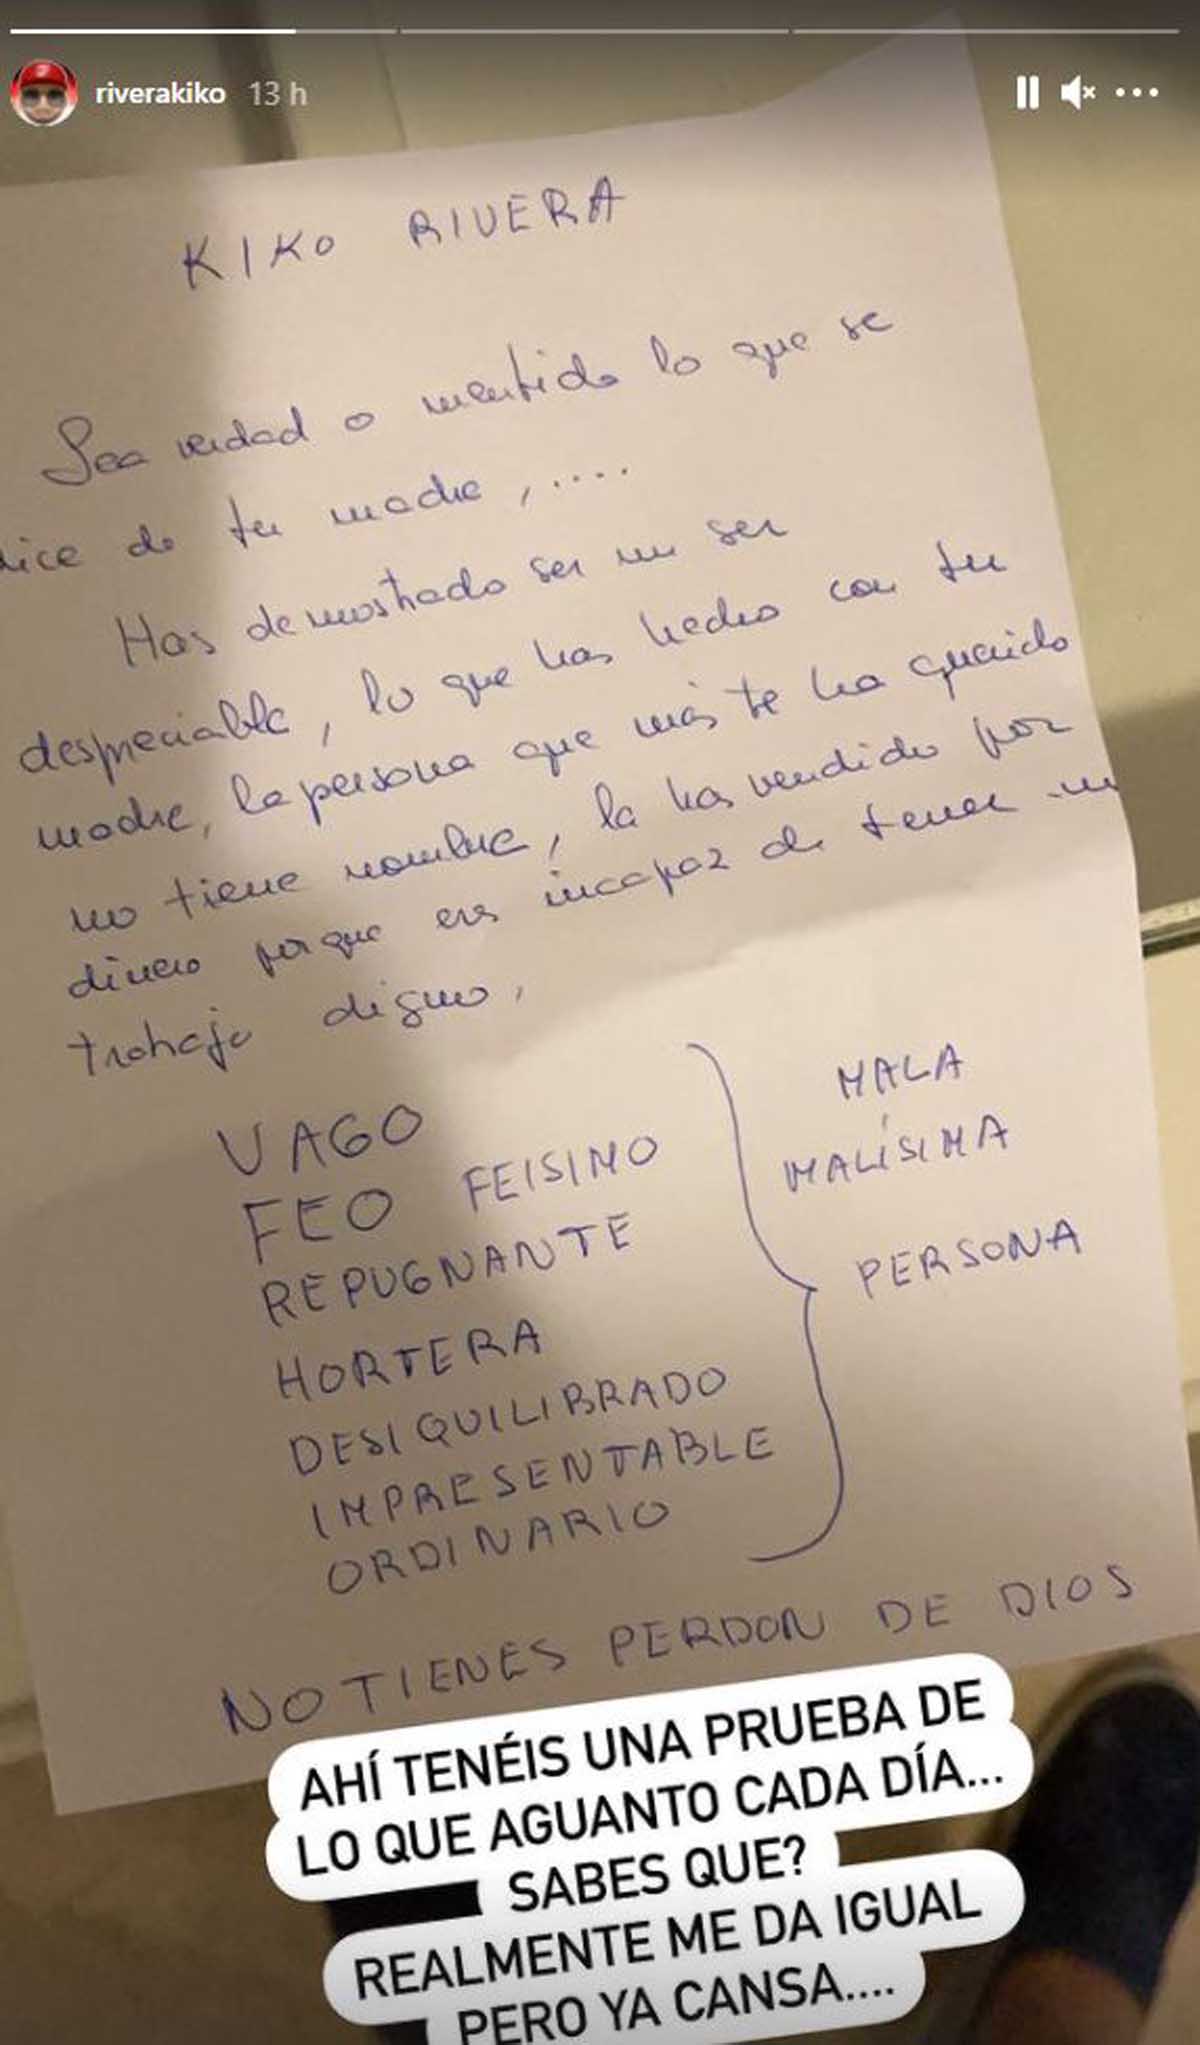 riverakiko 13 h
KIKO RIVERA
Sea verdad o mentida lo que se
dice de tu madre, ....
Has demostrado ser un ser
despreciable, lo que has hecho con tu
madre, la persona que más te ha querido
no tiene nombre, la has vendido por
dinero porque eres incapaz de tener un
trabajo digno,
VAGO
FEO FEISIMO
REPUGNANTE
HORTERA
DESIQUILIBRADO
IMPRESENTABLE
ORDINARIO
MALA
MALÍSIMA
PERSONA
NO TIENES PERDON DE DIOS
AHÍ TENÉIS UNA PRUEBA DE
LO QUE AGUANTO CADA DÍA...
SABES QUE?
REALMENTE ME DA IGUAL
PERO YA CANSA....